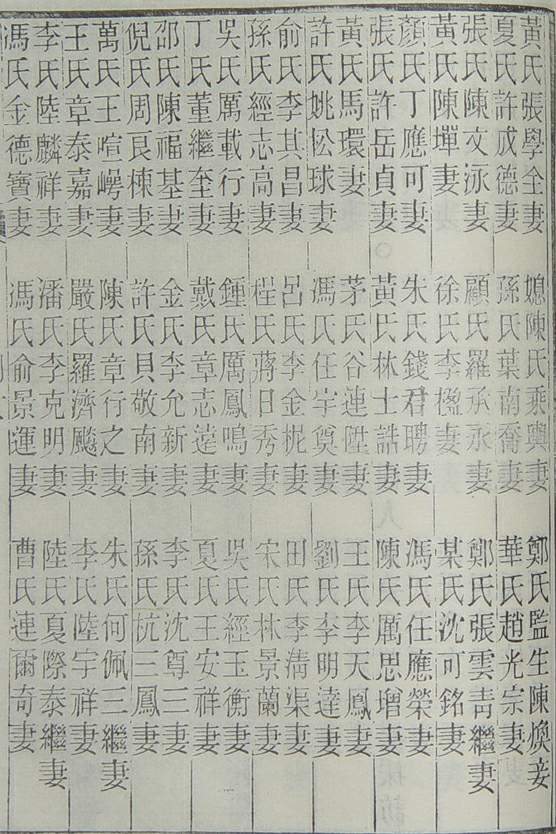 黃氏張學全妻 媳陳氏乘輿妻 鄭氏監生陳煥妾
夏氏許成德妻 孫氏葉南喬妻 華氏趙光宗妻
張氏陳文泳妻 顧氏羅承永妻 鄭氏張雲青繼妻
黃氏陳墠妻 徐氏李楹妻 某氏沈可銘妻
顏氏丁應可妻 朱氏錢君聘妻 馮氏任應榮妻
張氏許岳貞妻 黃氏林士誥妻 陳氏厲思增妻
黃氏馬環妻 茅氏谷連陞妻 王氏李天鳳妻
許氏姚松球妻 馮氏任宰奠妻 劉氏李明達妻
俞氏李其昌妻 呂氏李金柅妻 田氏李淸渠妻
孫氏經志高妻 桯氏蔣日秀妻 宋氏林景蘭妻
吳氏厲載行妻 鍾氏厲鳳鳴妻 吳氏經玉衡妻
丁氏董繼奎妻 戴氏章志達妻 夏氏王安祥妻
邵氏陳福基妻 金氏李允新妻 李氏沈尊三妻
倪氏周艮棟妻 許氏貝敬南妻 孫氏杭三鳳妻
萬氏王喧嶀妻 陳氏章行之妻 朱氏何佩三繼妻
王氏章泰嘉妻 嚴氏羅濟飈妻 李氏陸宇祥妻
李氏陸麟祥妻 潘氏李克明妻 陸氏夏際泰繼妻
馮氏金德寶妻 馮氏俞景運妻 曹氏連爾奇妻